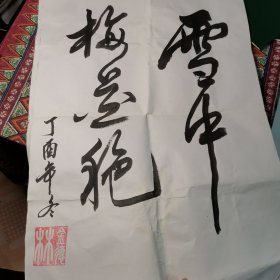 雪中
梅益艳
丁酉年冬